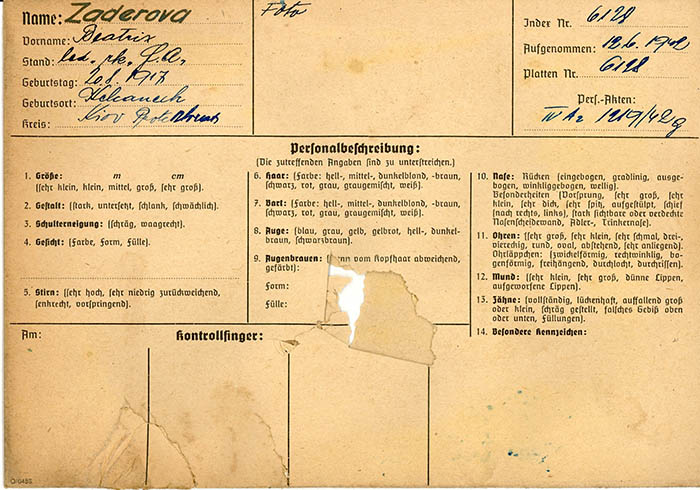 Name: Zaderova
Vorname: Beatrix
Stand: led. rk.
Geburtstag: 1917
Geburtsort:
Kreis:
Foto
Index Nr. 6128
Aufgenommen: 12.6. 1942
Platten Nr. 6128
Pers.-Akten:
IV A2 1219/42g
Personalbeschreibung:
(Die zutreffenden Angaben sind zu unterstreichen.)
1. Größe: m cm
(sehr klein, klein, mittel, groß, sehr groß).
2. Gestalt: (stark, untersetzt, schlank, schwächlich).
3. Schulterneigung: (schräg, waagrecht).
4. Gesicht: (Farbe, Form, Fülle).
5. Stirn: (sehr hoch, sehr niedrig zurückweichend,
senkrecht, vorspringend).
6. Haar: (Farbe: hell-, mittel-, dunkelblond, -braun,
schwarz, rot, grau, graugemischt, weiß).
7. Bart: (Farbe: hell-, mittel-, dunkelblond, -braun,
schwarz, rot, grau, graugemischt, weiß).
8. Auge: (blau, grau, gelb, gelbrot, hell-, dunkel-
braun, schwarzbraun).
9. Augenbrauen: (wenn vom Kopfhaar abweichend,
gefärbt):
Form:
Fülle:
10. Nase: Rücken (eingebogen, gradlinig, ausge-
bogen, winkliggebogen, wellig).
Besonderheiten (Vorsprung, sehr groß, sehr
klein, sehr dick, sehr spitz, aufgestülpt, schief
(nach rechts, links), stark sichtbare oder verdeckte
Nasenscheidewand, Adler-, Trinkernase).
11. Ohren: (sehr groß, sehr klein, sehr schmal, drei-,
viereckig, rund, oval, abstehend, sehr anliegend).
Ohrläppchen: (zwickelförmig, rechtwinklig, bo-
genförmig, freihängend, durchlocht, durchrissen).
12. Mund: (sehr klein, sehr groß, dünne Lippen,
aufgeworfene Lippen).
13. Zähne: (vollständig, lückenhaft, auffallend groß
oder klein, schräg gestellt, falsches Gebiß oben
oder unten, Füllungen).
14. Besondere Kennzeichen:
Am: Kontrollfinger: